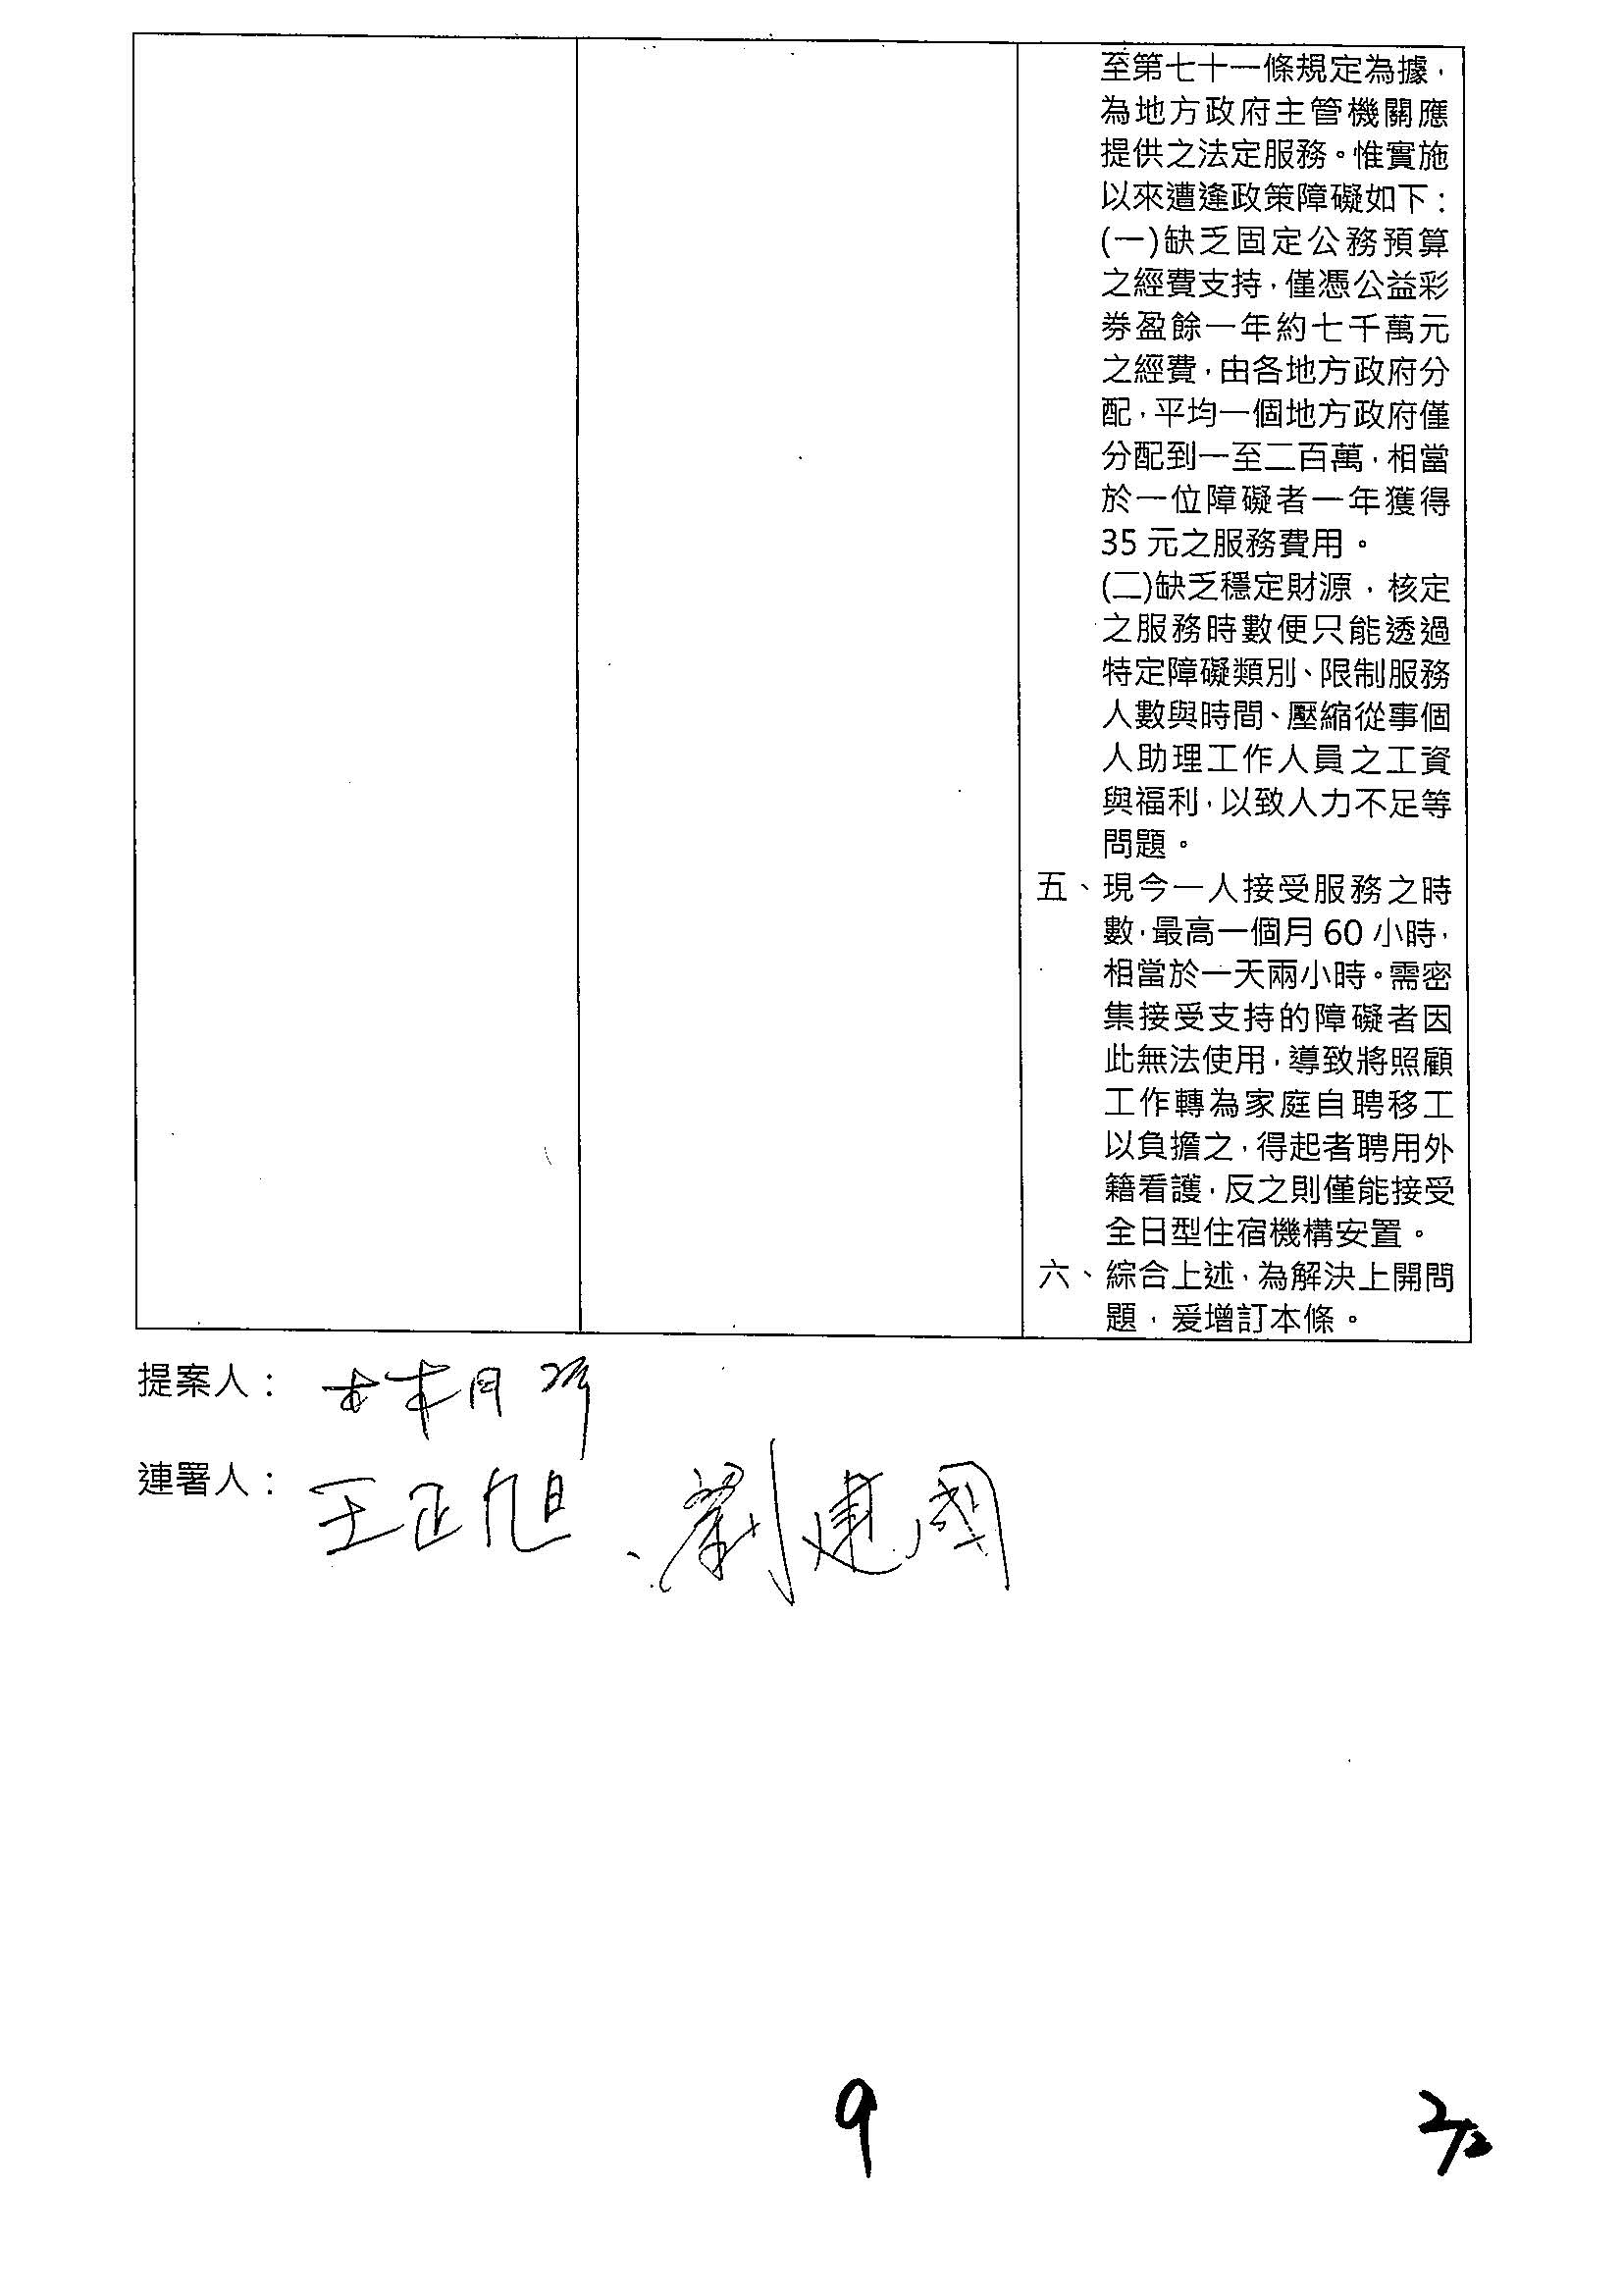 至第七十一條規定為據，
為地方政府主管機關應
提供之法定服務。惟實施
以來遭逢政策障礙如下：
(一)缺乏固定公務預算
之經費支持，僅憑公益彩
券盈餘一年約七千萬元
之經費，由各地方政府分
配，平均一個地方政府僅
分配到一至二百萬，相當
於一位障礙者一年獲得
35 元之服務費用。
(二)缺乏穩定財源，核定
之服務時數便只能透過
特定障礙類別、限制服務
人數與時間、壓縮從事個
人助理工作人員之工資
與福利，以致人力不足等
問題。
五、現今一人接受服務之時
數，最高一個月 60 小時，
相當於一天兩小時。需密
集接受支持的障礙者因
此無法使用，導致將照顧
工作轉為家庭自聘移工
以負擔之，得起者聘用外
籍看護，反之則僅能接受
全日型住宿機構安置。
六、綜合上述，為解決上開問
題，爰增訂本條。
提案人：林月琴
連署人：王正旭、劉建國
9
2/2